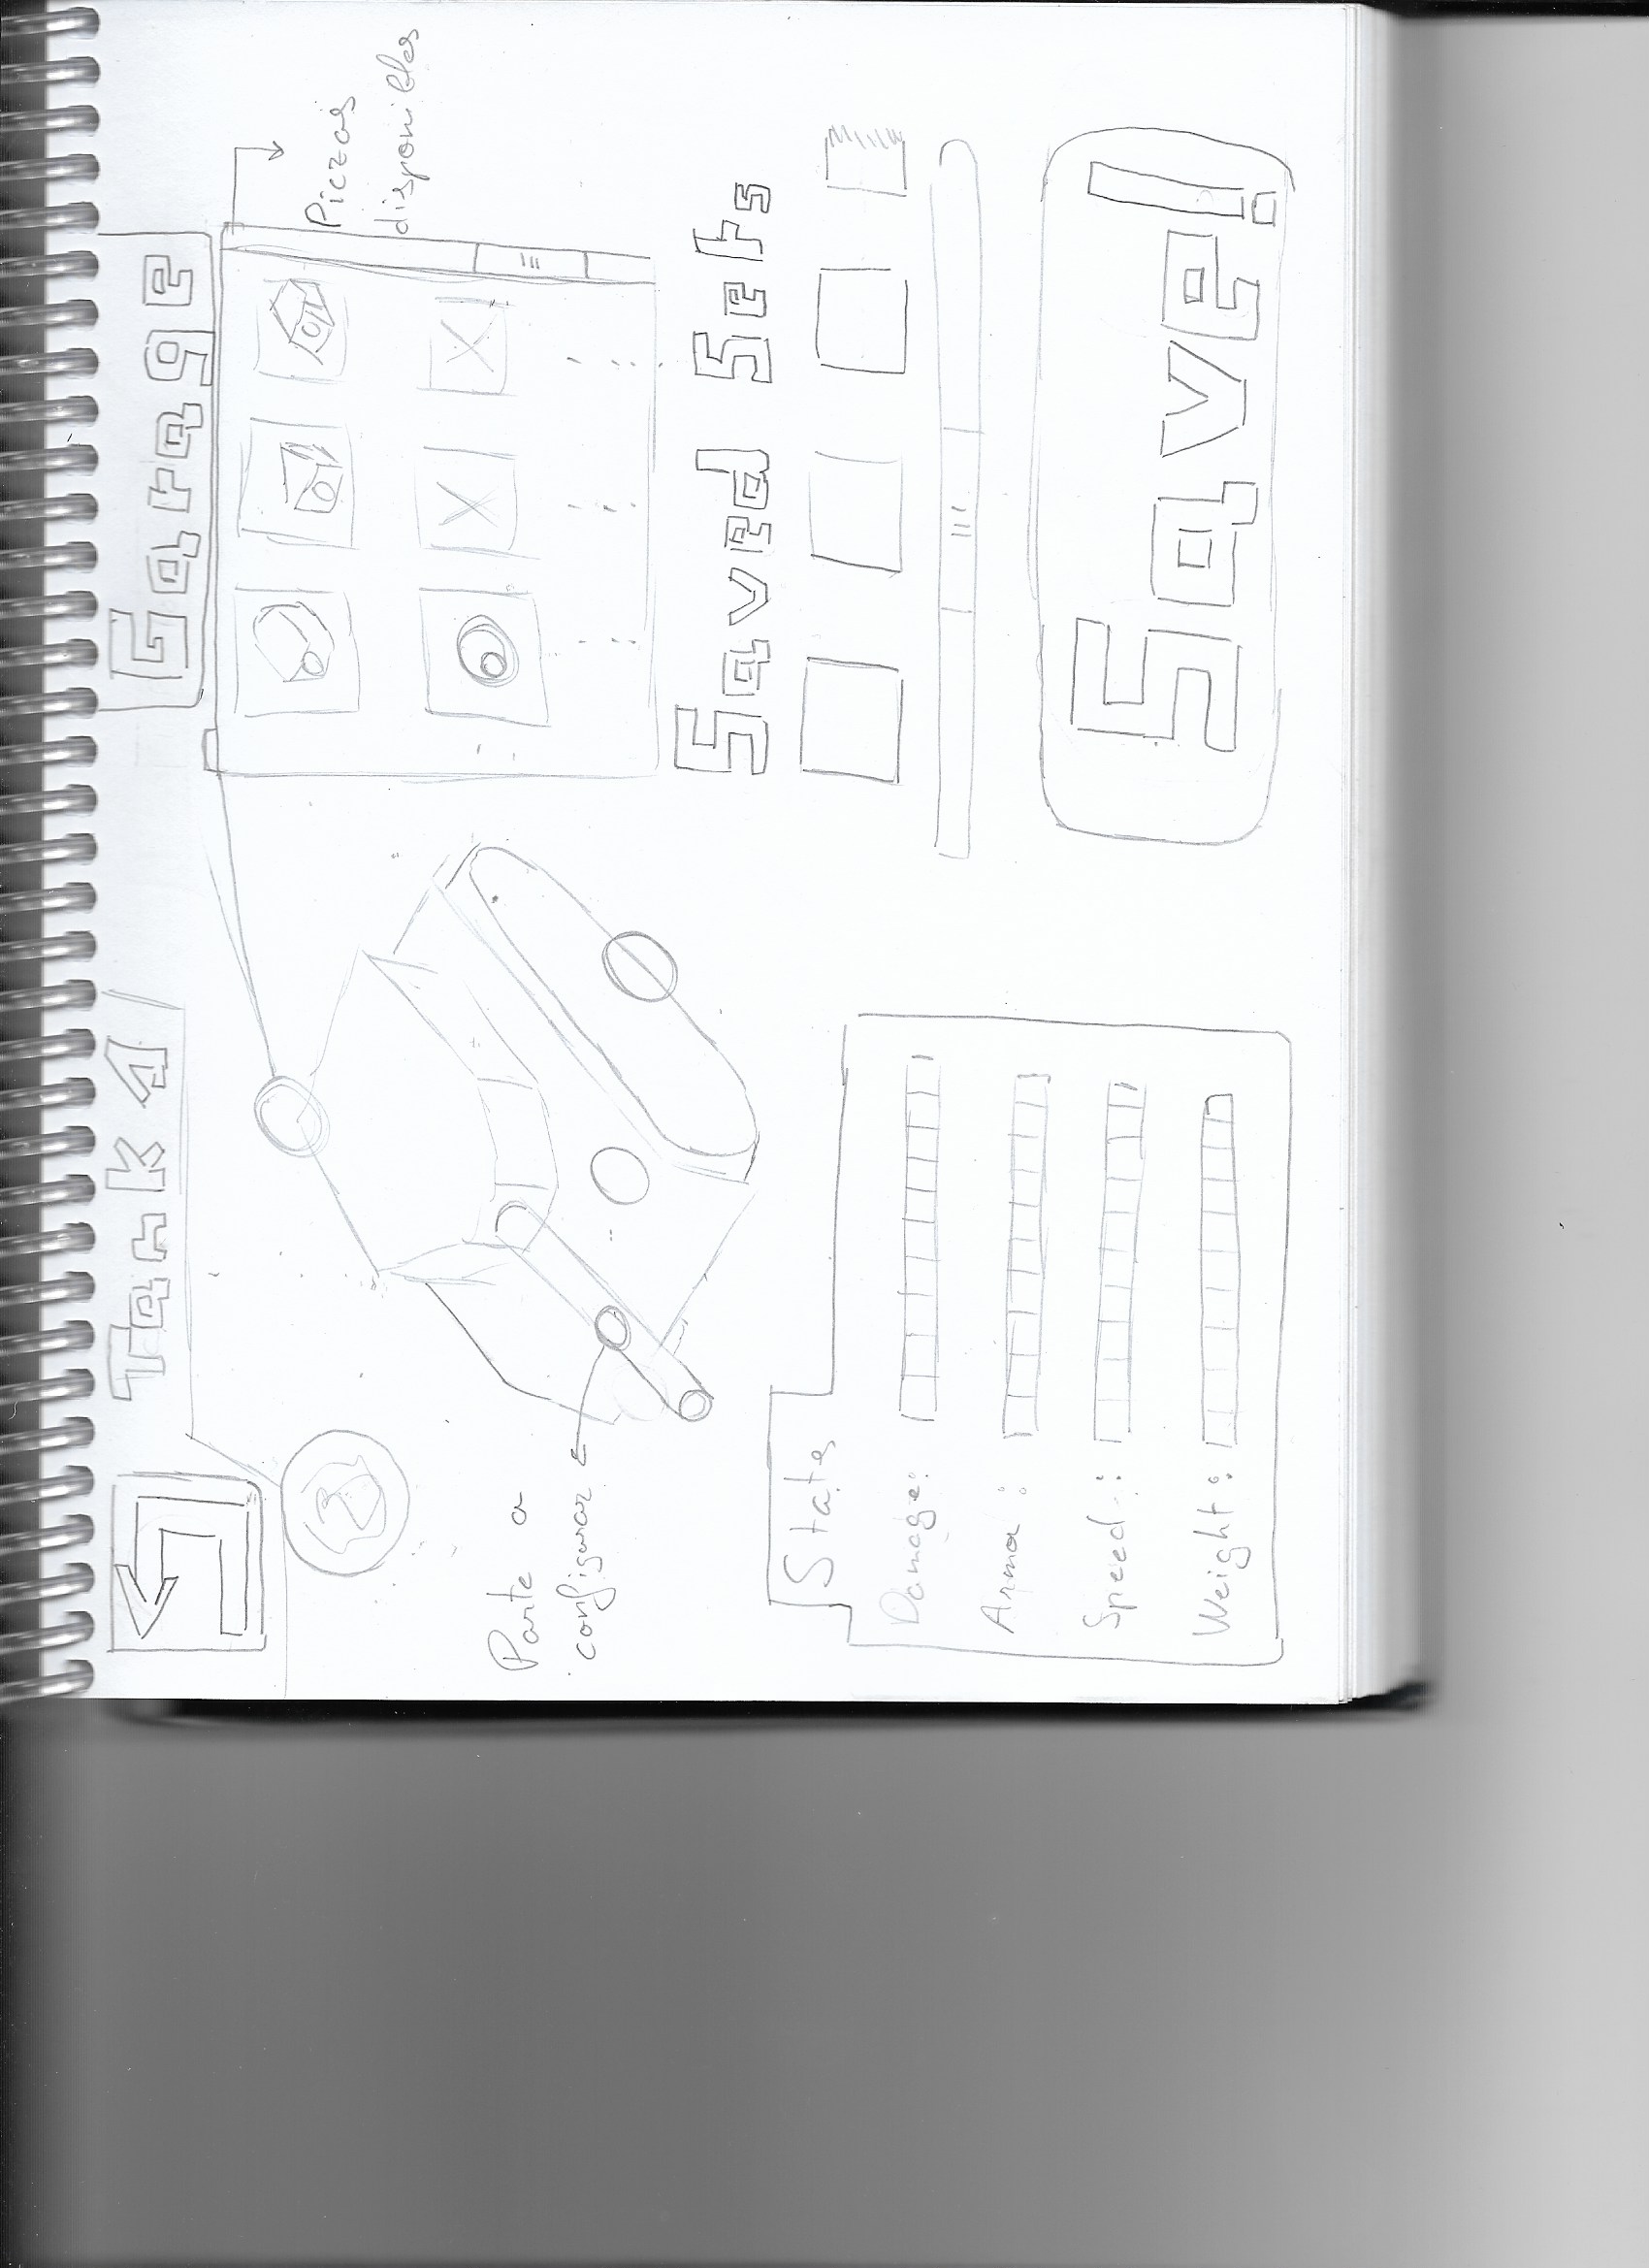 Tank 1
Garage
Piezas
disponibles
Parte a
configurar
Saved Sets
Stats
Damage:
Armor :
Speed :
Weight :
Save!